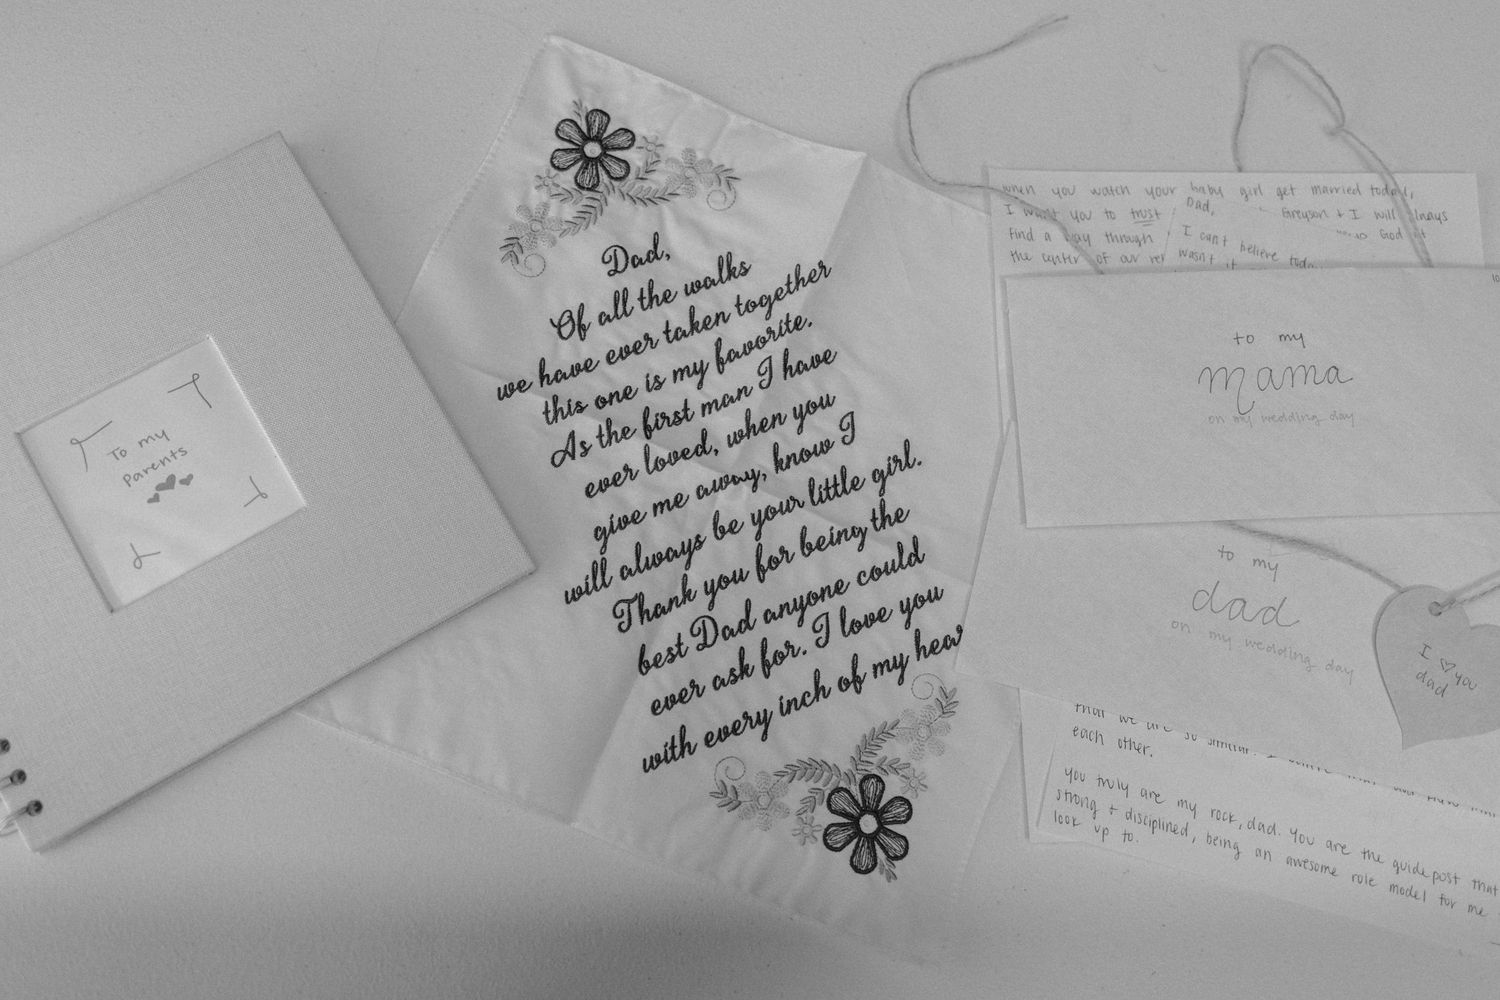 To my
Parents
Dad,
Of all the walks
we have ever taken together
this one is my favorite.
As the first man I have
ever loved, when you
give me away, know I
will always be your little girl.
Thank you for being the
best Dad anyone could
ever ask for. I love you
with every inch of my hear
when you watch your baby girl get married today,
I want you to trust
find a way through
the center of our rel
Greyson + I will always
God at
Dad,
I can't believe today
wasn't it
to my
mama
on my wedding day
to my
dad
on my wedding day
I ♡ you
dad
that we are so similar. I
each other.
You truly are my rock, dad. You are the guidepost that
strong + disciplined, being an awesome role model for me
look up to.